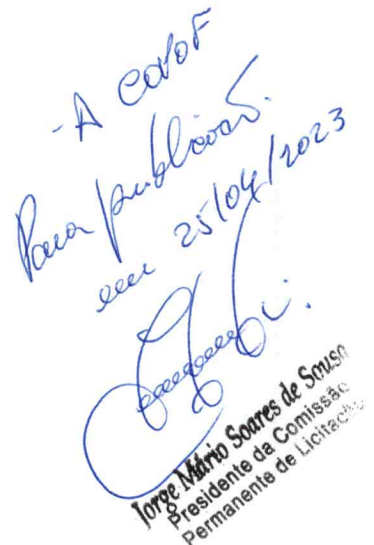 - A
Para publicação.
em 25/04/2023
Jorge Mário Soares de Sousa
Presidente da Comissão
Permanente de Licitação